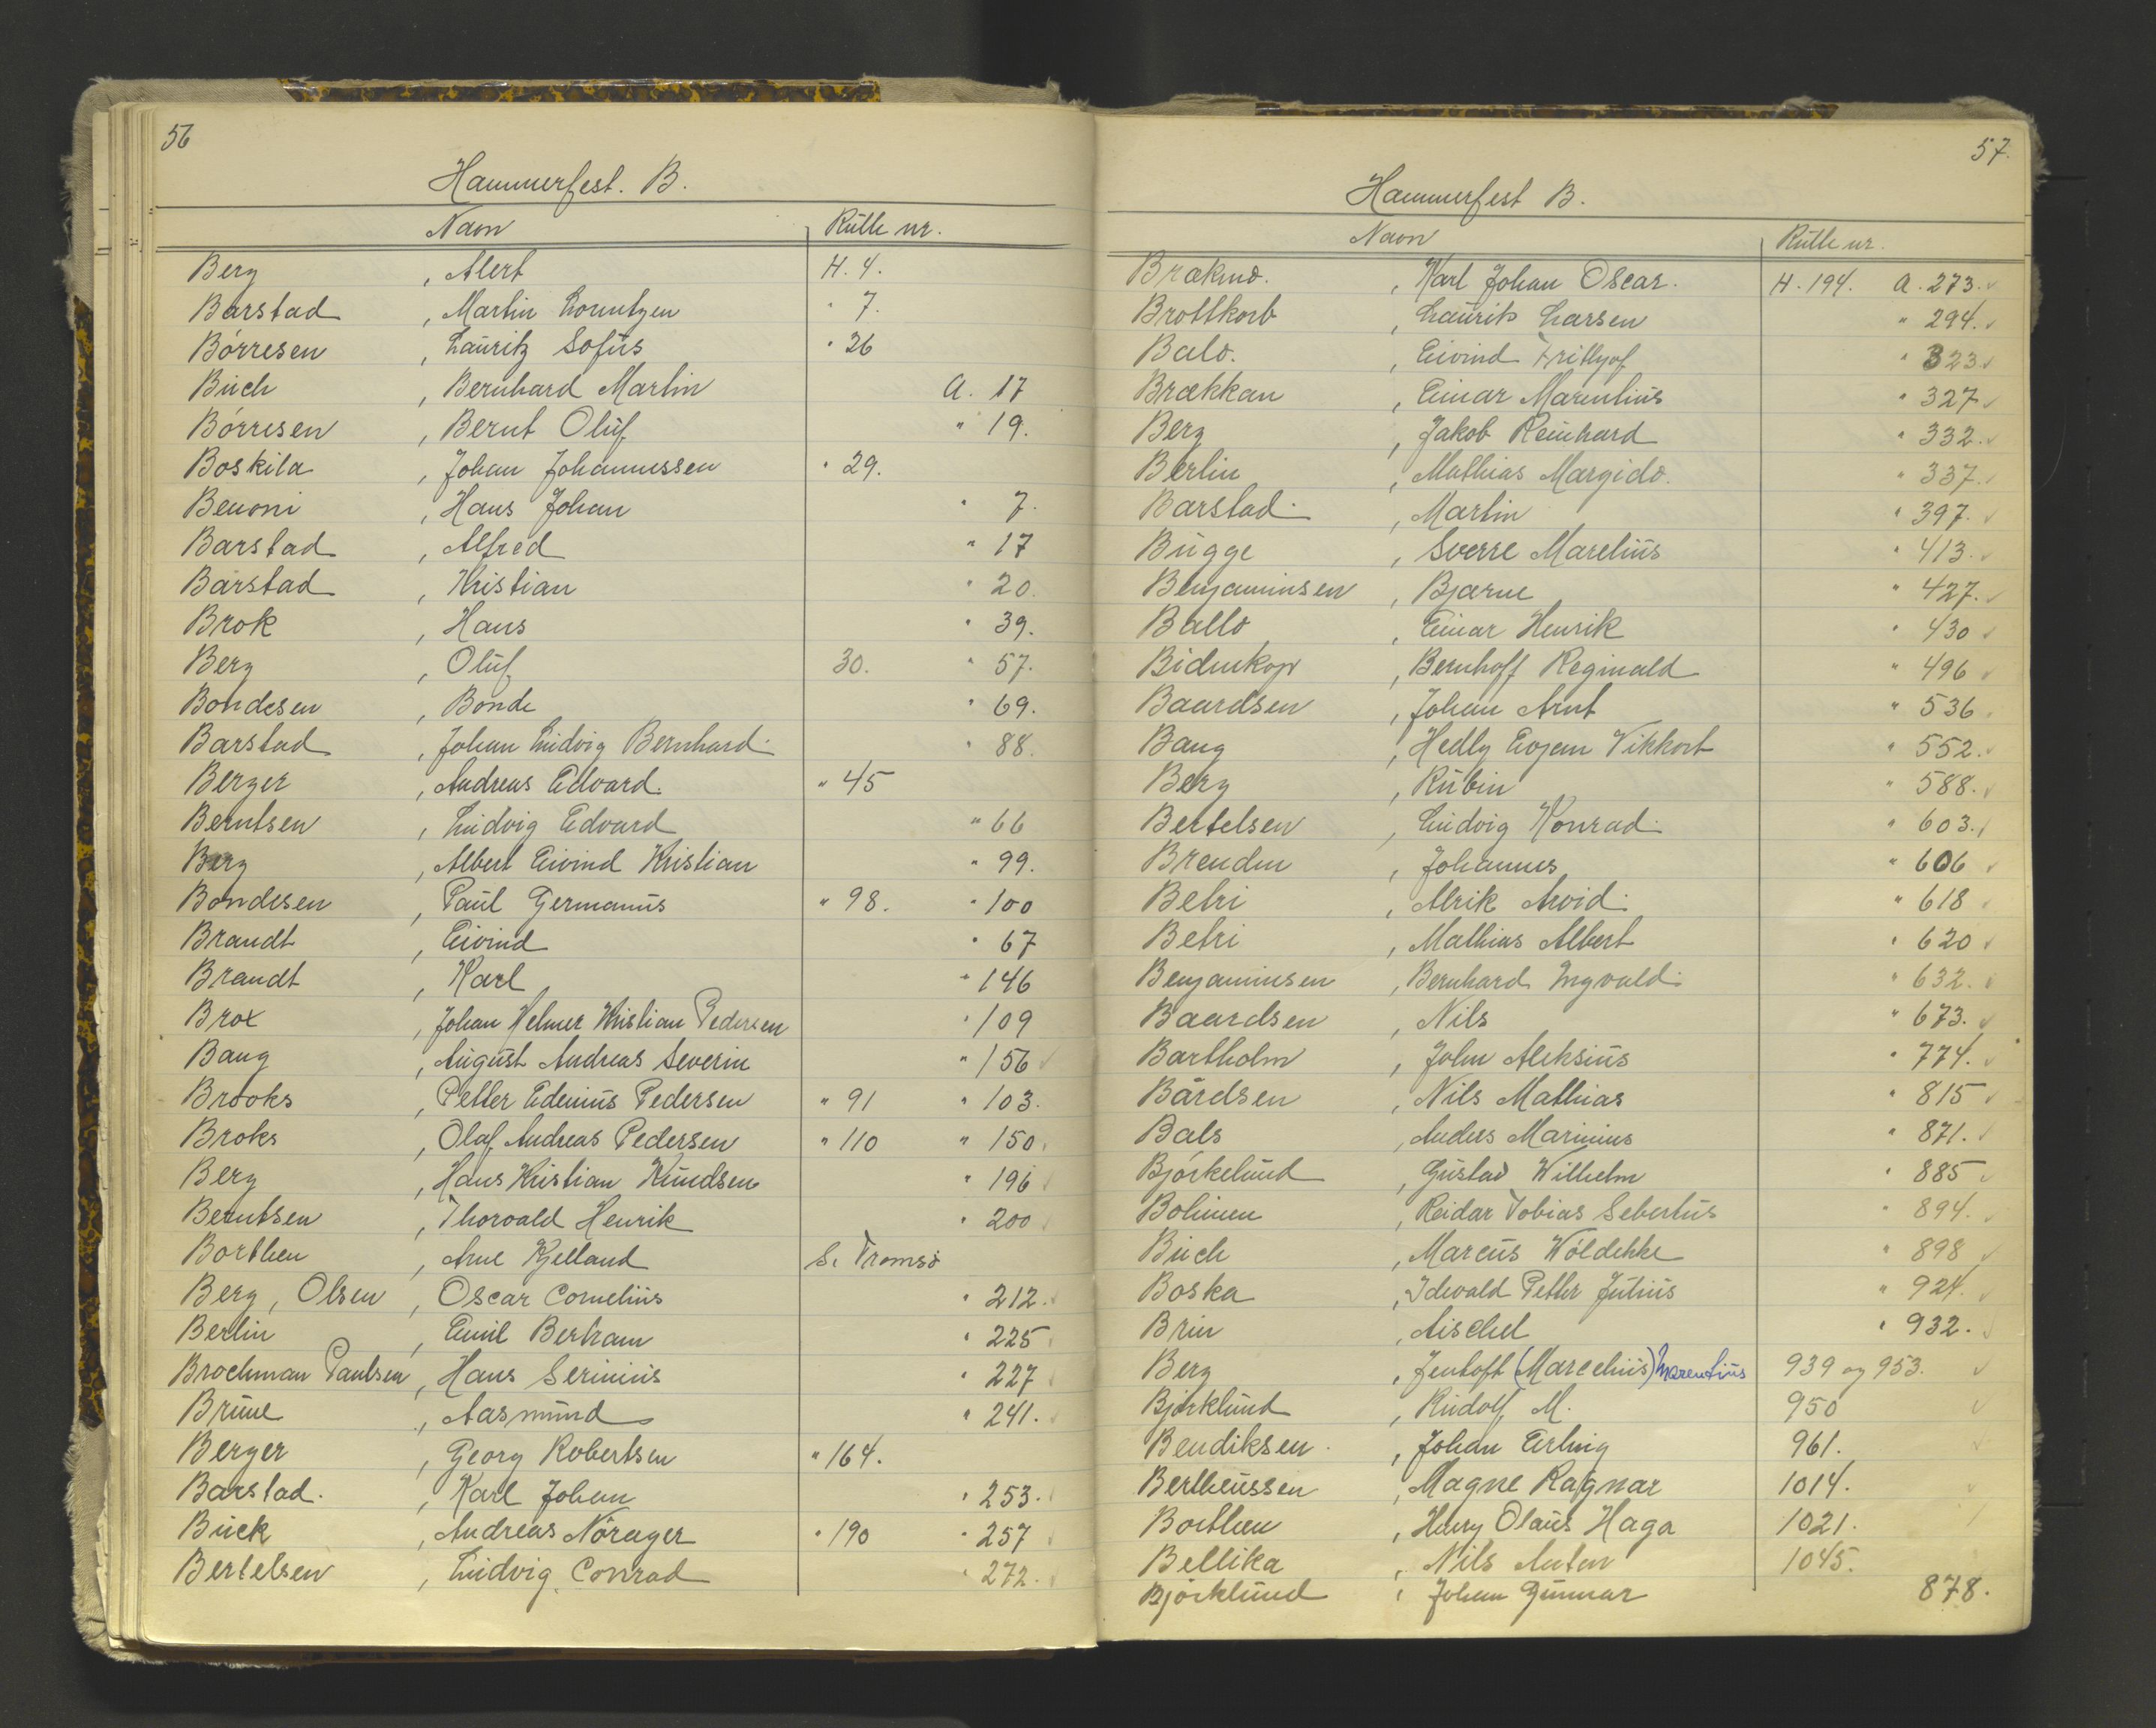 56
Hammerfest. B.
Navn Rulle nr.
Berg , Alert H. 4.
Barstad , Martin Lorentzen " 7.
Börresen , Lauritz Sofus " 26
Buch , Bernhard Martin A. 17
Börresen , Bernt Oluf " 19.
Boskila , Johan Johannessen " 29.
Benoni , Hans Johan " 7.
Barstad , Alfred " 17
Barstad , Kristian " 20.
Brok , Hans " 39.
Berg , Oluf 30. " 57.
Bondesen , Bonde " 69.
Barstad , Johan Ludvig Bernhard " 88.
Berger , Andreas Edvard. " 45
Berntsen , Ludvig Edvard " 66
Berg , Albert Eivind Kristian " 99.
Bondesen , Paul Germanus " 98. " 100
Brandt , Eivind " 67
Brandt , Karl " 146
Brox , Johan Helmer Kristian Pedersen " 109
Bang , August Andreas Severin " 156 ✓
Brooks , Petter Edenius Pedersen " 91 " 103.
Broks , Olaf Andreas Pedersen " 110 " 150.
Berg , Hans Kristian Knudsen " 196 ✓
Berntsen , Thorvald Henrik " 200 ✓
Borthen , Arne Kjelland S. Tromsö
Berg, Olsen , Oscar Cornelius " 212. ✓
Berlin , Emil Bertram " 225
Brochman Paulsen , Hans Serinius " 227 ✓
Brune , Aasmund " 241. ✓
Berger , Georg Robertsen " 164.
Barstad. , Karl Johan " 253. ✓
Buck , Andreas Nörager " 190 " 257 ✓
Bertelsen , Ludvig Conrad " 272. ✓
57.
Hammerfest B.
Navn Rulle nr.
Brækmo. , Karl Johan Oscar. H. 194. A. 273. ✓
Brottkorb , Laurits Larsen " 294. ✓
Balo. , Eivind Frithjof " 323 ✓
Brækkan , Einar Marentius " 327 ✓
Berg , Jakob Reinhard " 332. ✓
Berlin , Mathias Margido. " 337. ✓
Barstad. , Martin " 397. ✓
Bugge , Sverre Marelius " 413. ✓
Benjaminsen , Bjarne " 427. ✓
Ballo , Einar Henrik " 430 ✓
Bidenkop , Bernhoff Reginald " 496 ✓
Baardsen , Johan Arnt " 536.
Bang , Hedly Evjem Vikkort " 552. ✓
Berg , Rubin " 588. ✓
Bertelsen , Ludvig Konrad. " 603. ✓
Brenden , Johannes " 606 ✓
Betri , Alrik Arvid. " 618 ✓
Betri , Mathias Albert " 620 ✓
Benjaminsen , Bernhard Ingvald. " 632. ✓
Baardsen , Nils " 673. ✓
Bartholm , John Aleksius " 774. ✓
Bårdsen , Nils Mathias " 815 ✓
Bals , Anders Marinius " 871. ✓
Björkelund , Gustav Wilhelm " 885 ✓
Bolinen , Reidar Tobias Sebertus " 894. ✓
Buch , Marcus Wöldekke " 898 ✓
Boska , Idevald Petter Julius " 924. ✓
Brin , Aischel " 932. ✓
Berg , Jentoft (Marcelius) Marentius 939 og 953. ✓
Björklund , Rudolf M. 950 ✓
Bendiksen. , Johan Erling 961. ✓
Bertheussen , Magne Ragnar 1014. ✓
Borthen , Harry Olaus Haga 1021. ✓
Bellika , Nils Anton 1045.
Björklund , Johan Gunnar 878.